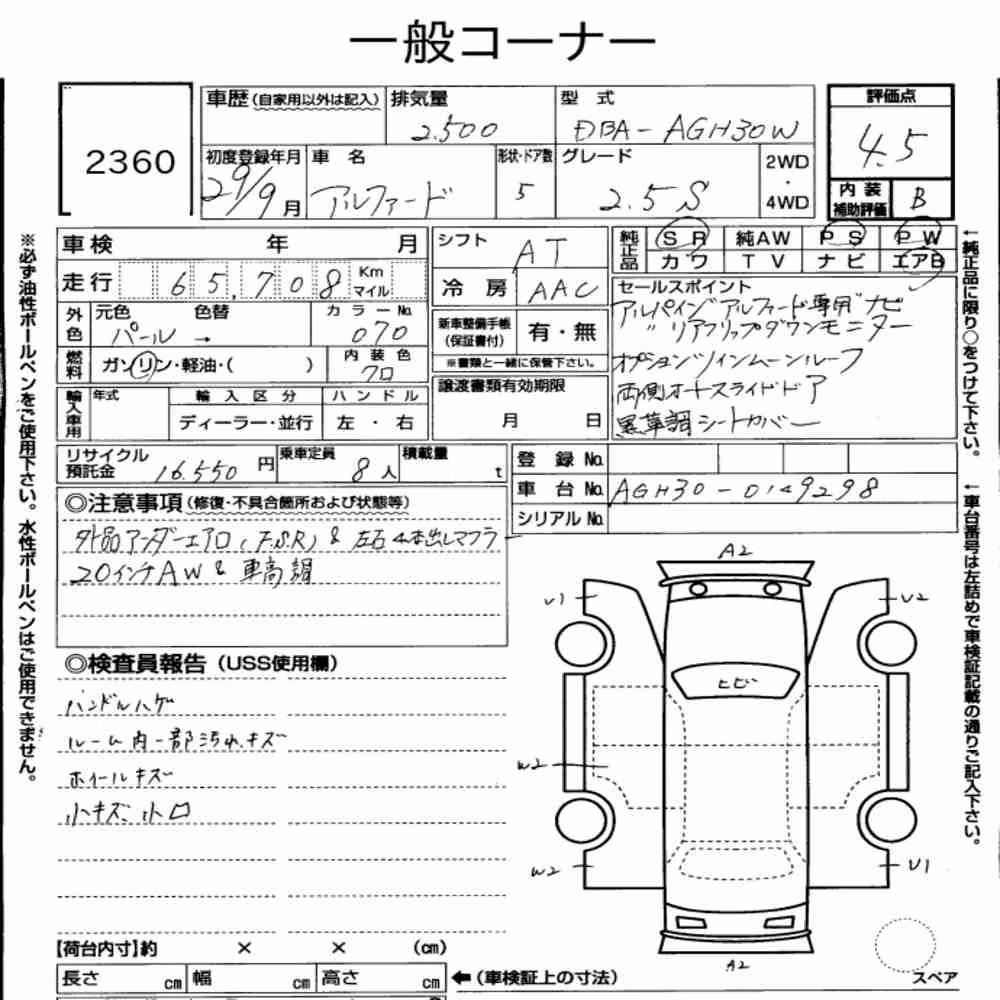 一般コーナー
2360
車歴(自家用以外は記入)
排気量
2.500
型 式
DBA-AGH30W
評価点
4.5
初度登録年月
29/9月
車 名
アルファード
形状・ドア数
5
グレード
2.5S
2WD
・
4WD
内 装
補助評価
B
車 検 年 月
シフト
AT
純正品
SR 純AW PS PW
カワ TV ナビ エアB
走行 65,708 Km
マイル
冷 房
AAC
セールスポイント
アルパインアルファード専用ナビ
〃 リアフリップダウンモニター
オプションツインムーンルーフ
両側オートスライドドア
黒革調シートカバー
外色
元色 色替
パール →
カラーNo.
070
新車整備手帳
(保証書付)
有・無
※書類と一緒に保管下さい。
燃料
ガソリン・軽油・( )
内 装 色
クロ
譲渡書類有効期限
月 日
輸入車用
年式
輸 入 区 分
ディーラー・並行
ハ ン ド ル
左 ・ 右
リサイクル
預託金
16.550円
乗車定員
8人
積載量
t
登 録 No.
車 台 No.
AGH30-0149298
シリアルNo.
◎注意事項(修復・不具合箇所および状態等)
外品アンダーエアロ(F.S.R)&左右4本出しマフラ
20インチAW&車高調
◎検査員報告(USS使用欄)
ハンドルハゲ
ルーム内一部汚れ.キズ
ホイールキズ
小キズ、小凹
A2
U1
U2
ヒビ
W2
W2
U1
A2
スペア
【荷台内寸】約 × × (cm)
長さ cm 幅 cm 高さ cm
←(車検証上の寸法)
※必ず油性ボールペンをご使用下さい。水性ボールペンはご使用できません。
←純正品に限り○をつけて下さい。
←車台番号は左詰めで車検証記載の通りご記入下さい。